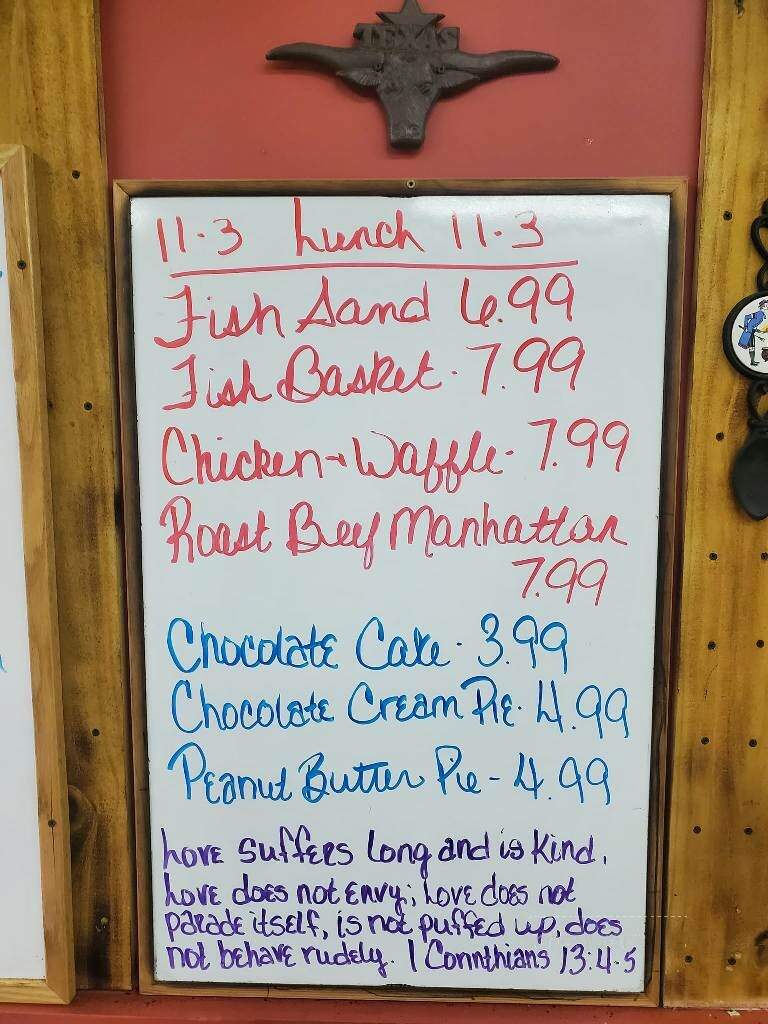 TEXAS
11-3 Lunch 11-3
Fish Sand 6.99
Fish Basket - 7.99
Chicken + Waffle - 7.99
Roast Beef Manhattan
7.99
Chocolate Cake - 3.99
Chocolate Cream Pie - 4.99
Peanut Butter Pie - 4.99
Love suffers long and is kind.
Love does not envy; Love does not
parade itself, is not puffed up, does
not behave rudely. 1 Corinthians 13:4-5